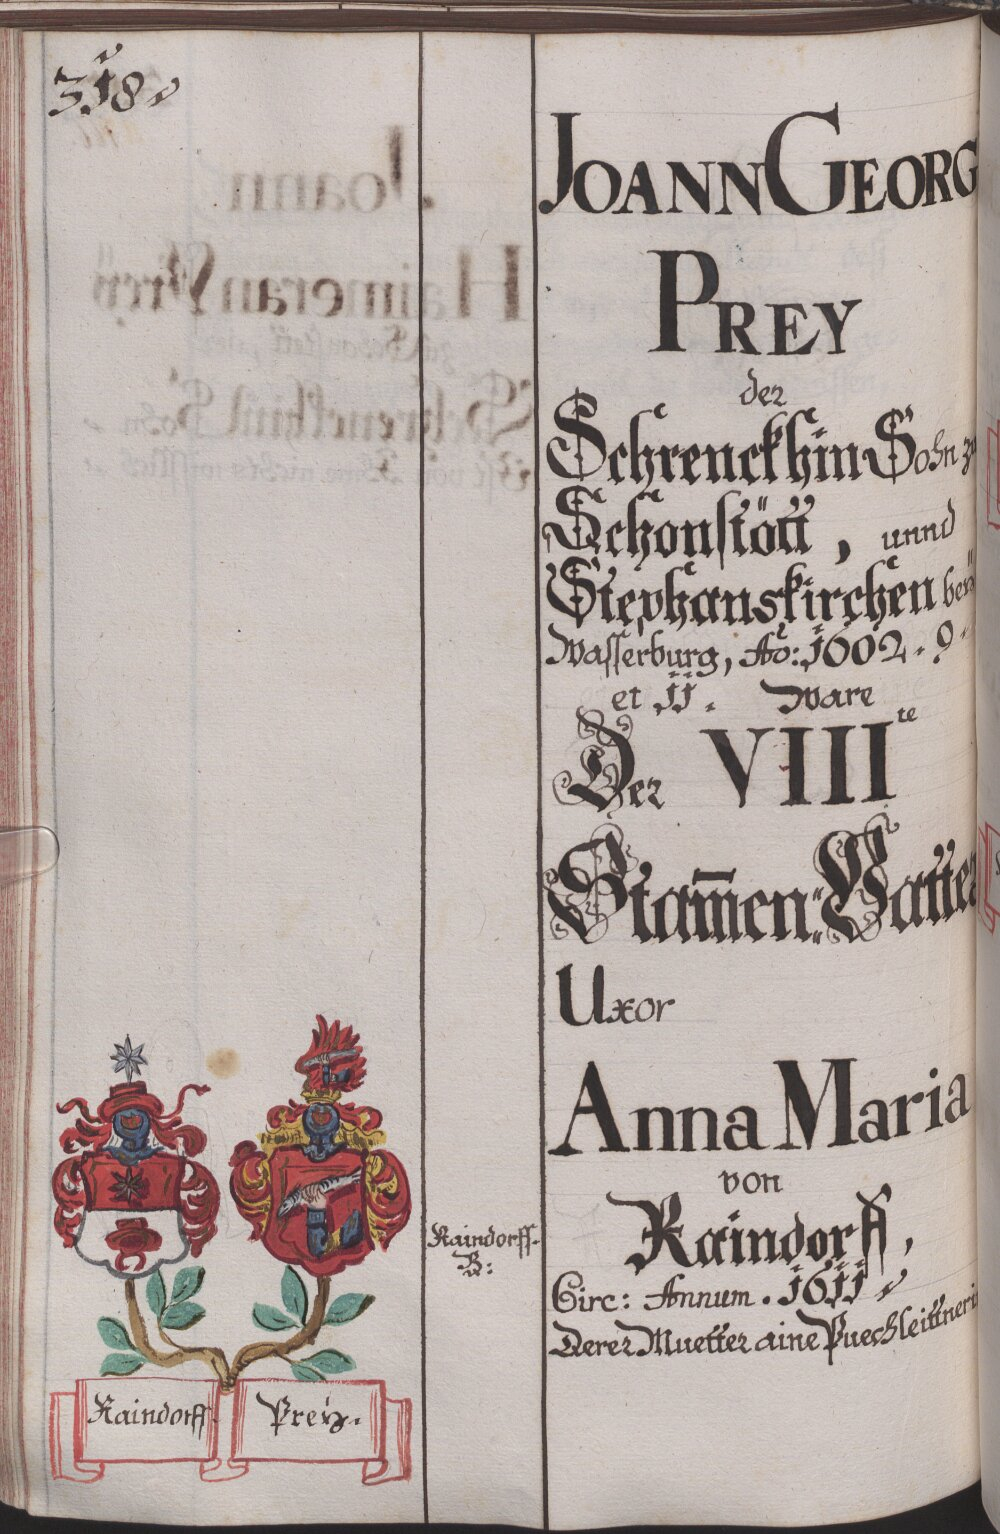 318
Joann Georg
Prey
der
Schrenckhin Sohn zu
Schonstött, unnd
Stephanskirchen beÿ
Wasserburg, Ao: 1602. 9.
et 11. Ware
Der VIII te
Stam̄en-Vatter
Uxor
Anna Maria
von
Raindorff,
Circ: Annum. 1611
Derer Muetter aine Puechleittnerin
Raindorff.
B:
Raindorff.
Preÿ.